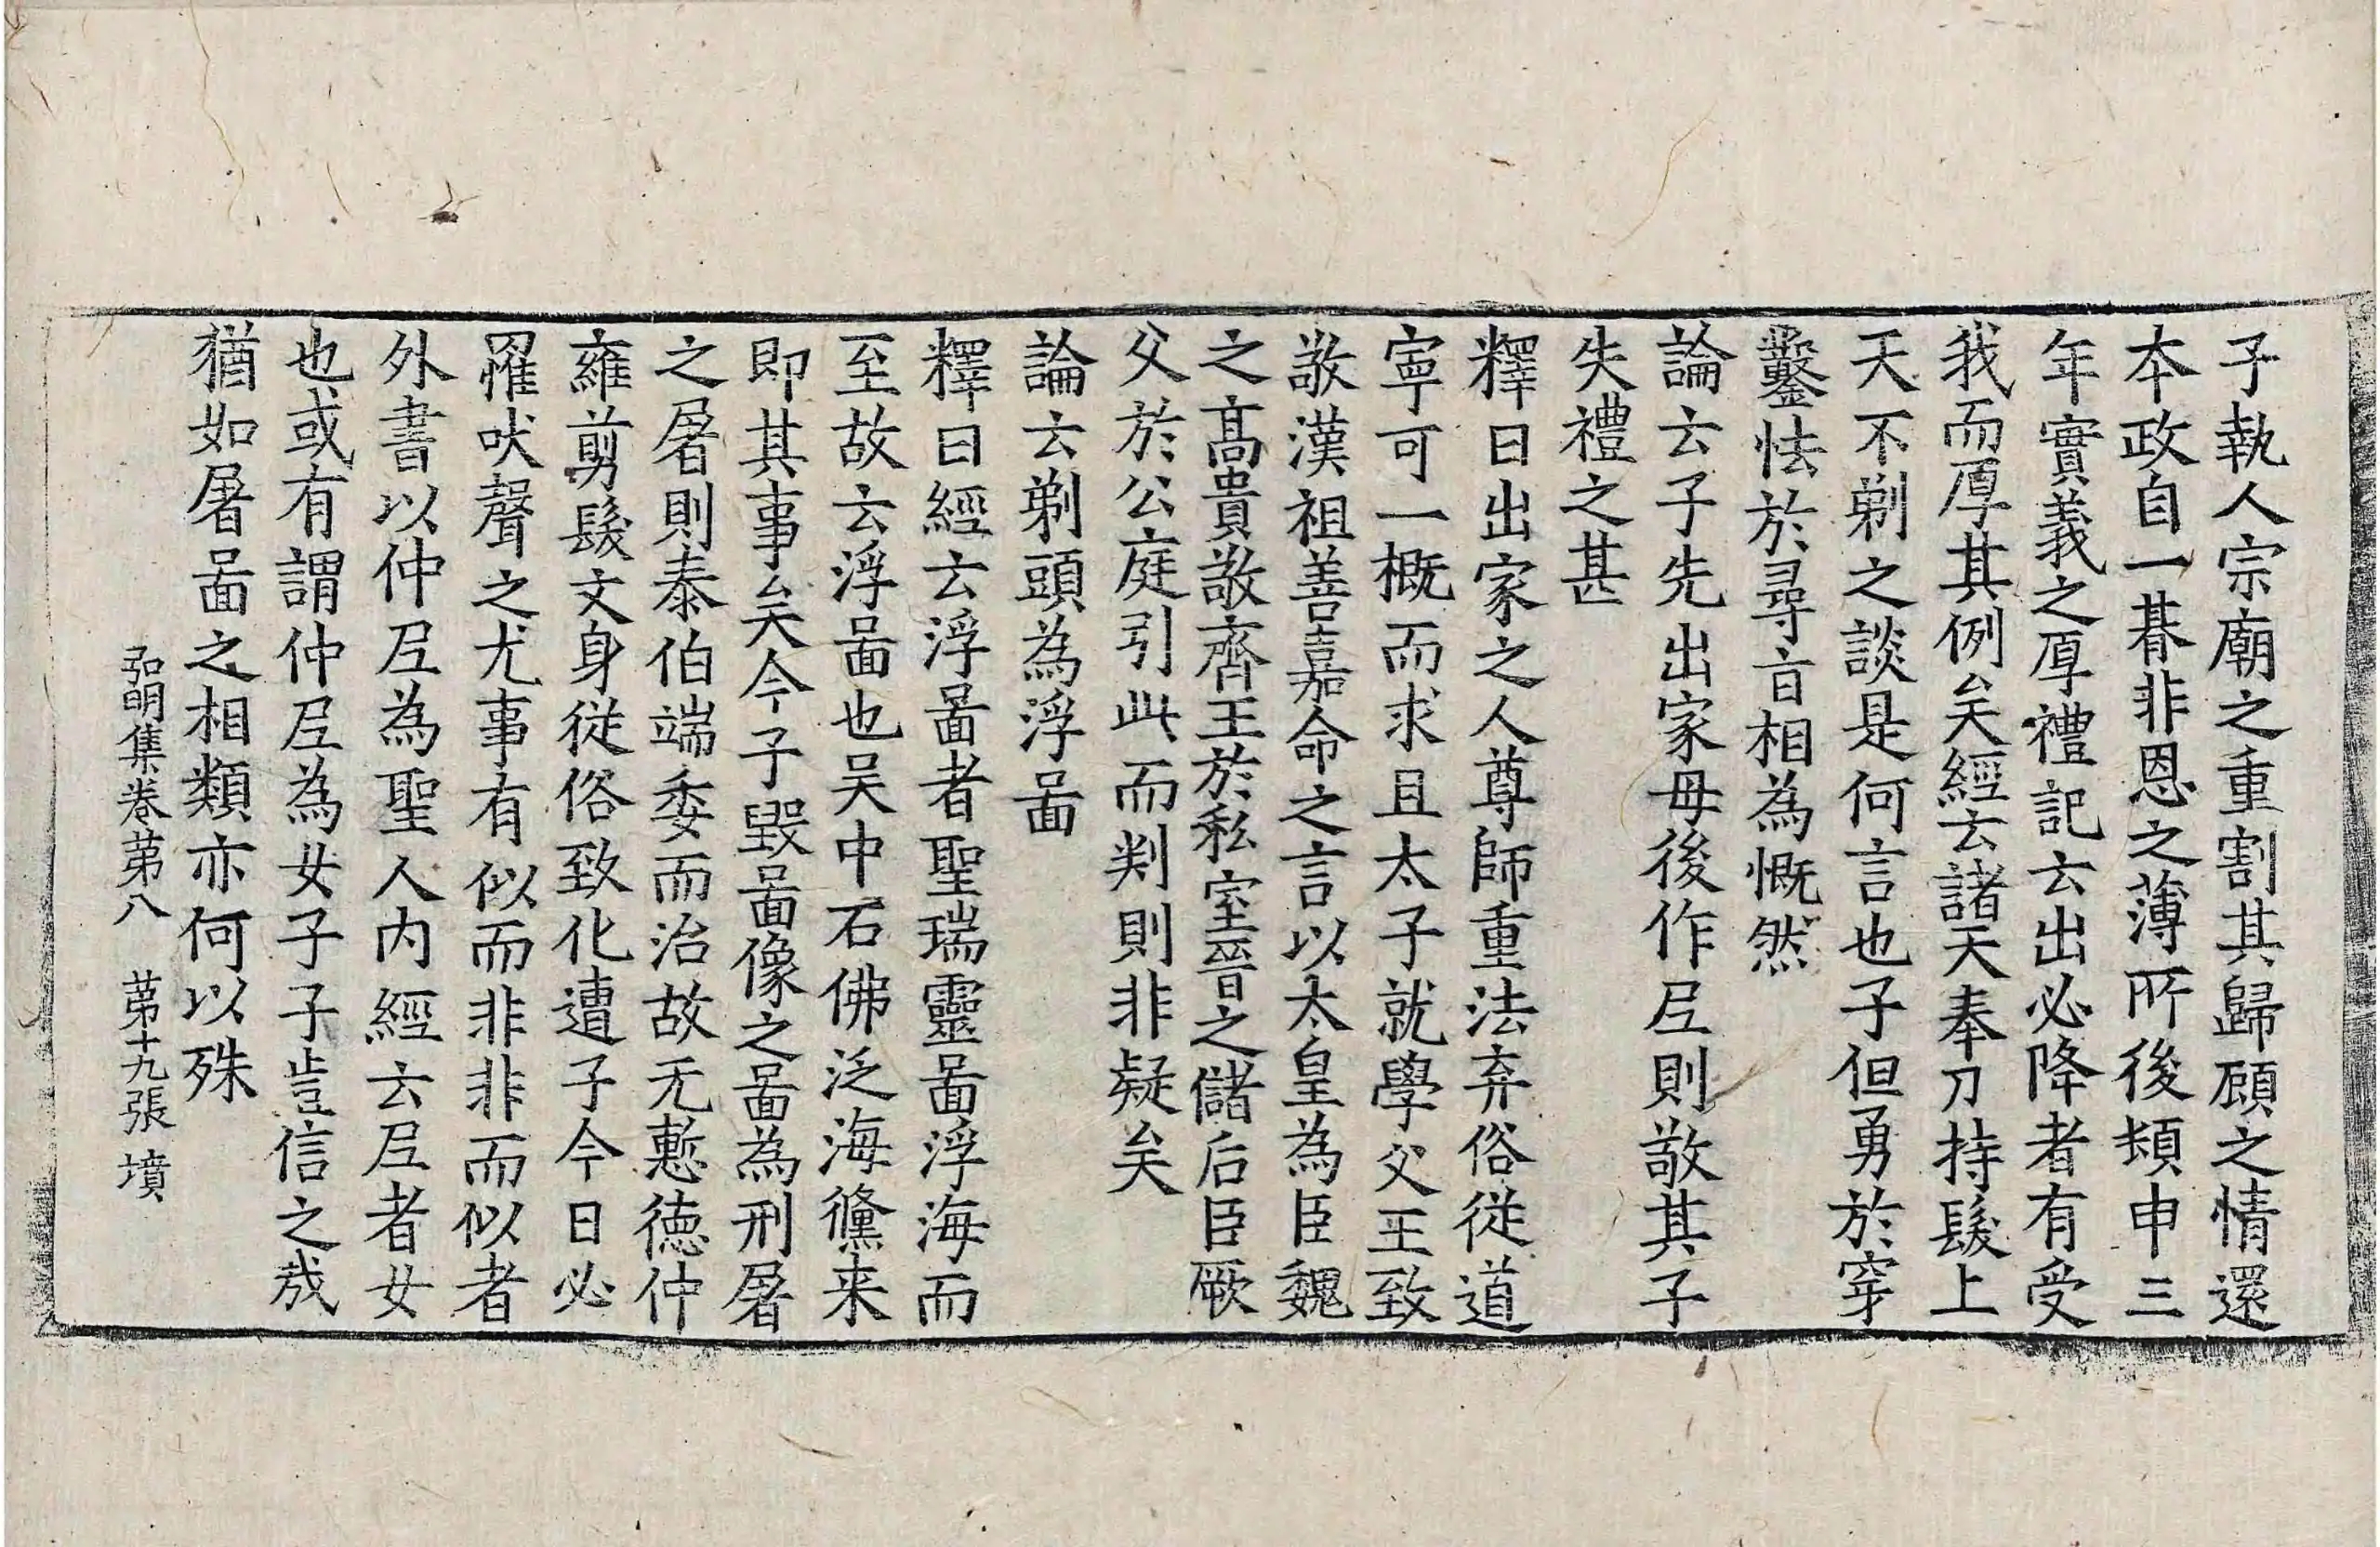 子執人宗廟之重割其歸顧之情還
本政自一朞非恩之薄所後頻申三
年實義之厚禮記云出必降者有受
我而厚其例矣經云諸天奉刀持髮上
天不剃之談是何言也子但勇於穿
鑿怯於尋旨相為慨然
論云子先出家母後作𡰱則敬其子
失禮之甚
釋曰出家之人尊師重法弃俗從道
寜可一概而求且太子就學父王致
敬漢祖善嘉命之言以太皇為臣魏
之髙貴敬齊王於私室晉之儲后臣厥
父於公庭引此而判則非疑矣
論云剃頭為浮啚
釋曰經云浮啚者聖瑞靈啚浮海而
至故云浮啚也吴中石佛泛海儻来
即其事矣今子毀啚像之啚為刑屠
之屠則泰伯端委而治故无慙德仲
雍剪髮文身從俗致化遭子今日必
羅吠聲之尤事有似而非非而似者
外書以仲𡰱為聖人内經云𡰱者女
也或有謂仲𡰱為女子子豈信之㦲
猶如屠啚之相類亦何以殊
弘明集卷苐八　苐十九張　墳